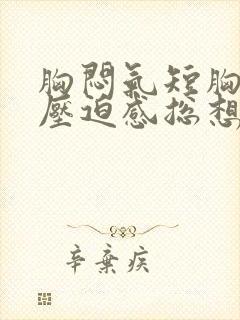 胸悶氣短胸
壓迫感總想
辛棄疾